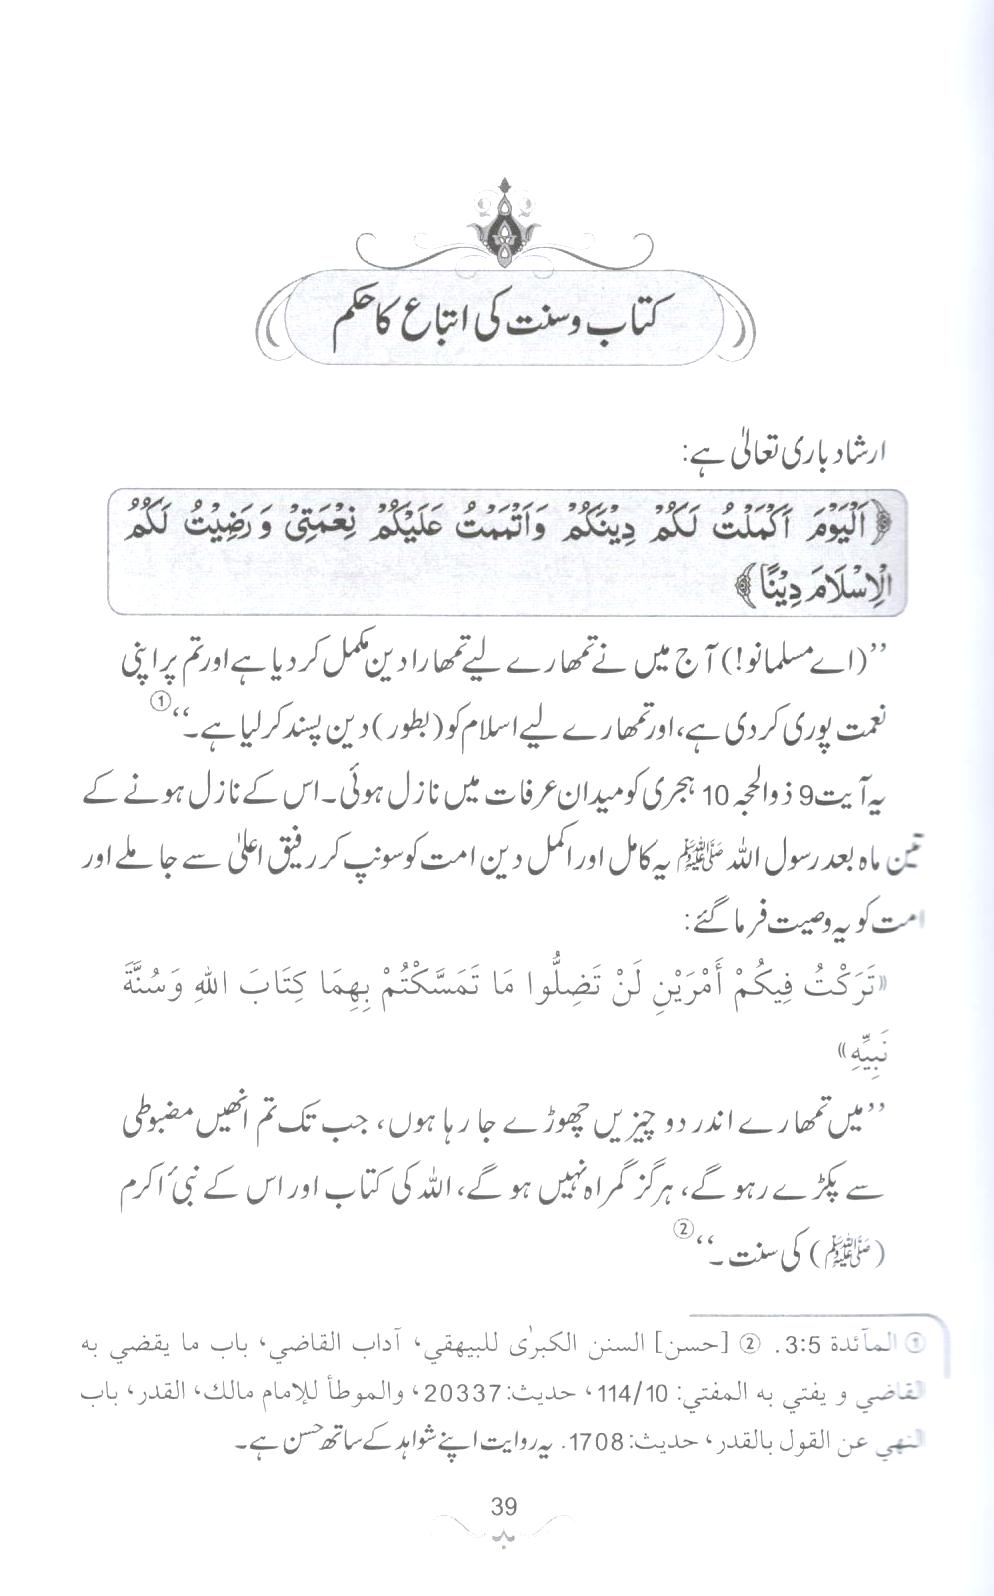 کتاب و سنت کی اتباع کا حکم
ارشاد باری تعالیٰ ہے:
﴿اَلْيَوْمَ اَكْمَلْتُ لَكُمْ دِيْنَكُمْ وَاَتْمَمْتُ عَلَيْكُمْ نِعْمَتِيْ وَ رَضِيْتُ لَكُمُ
الْاِسْلَامَ دِيْنًا﴾
’’(اے مسلمانو!) آج میں نے تمھارے لیے تمھارا دین مکمل کر دیا ہے اور تم پر اپنی
نعمت پوری کر دی ہے، اور تمھارے لیے اسلام کو (بطور) دین پسند کر لیا ہے۔‘‘①
یہ آیت 9 ذوالحجہ 10 ہجری کو میدان عرفات میں نازل ہوئی۔ اس کے نازل ہونے کے
تین ماہ بعد رسول اللہ ﷺ یہ کامل اور اکمل دین امت کو سونپ کر رفیق اعلیٰ سے جا ملے اور
امت کو یہ وصیت فرما گئے:
«تَرَكْتُ فِيكُمْ أَمْرَيْنِ لَنْ تَضِلُّوا مَا تَمَسَّكْتُمْ بِهِمَا كِتَابَ اللهِ وَسُنَّةَ
نَبِيِّهِ»
’’میں تمھارے اندر دو چیزیں چھوڑے جا رہا ہوں، جب تک تم انھیں مضبوطی
سے پکڑے رہو گے، ہرگز گمراہ نہیں ہو گے، اللہ کی کتاب اور اس کے نبیٔ اکرم
(ﷺ) کی سنت۔‘‘②
① المآئدة 3:5. ② [حسن] السنن الكبرٰى للبيهقي، آداب القاضي، باب ما يقضي به
القاضي و يفتي به المفتي: 114/10، حديث: 20337، والموطأ للإمام مالك، القدر، باب
النهي عن القول بالقدر، حديث: 1708. یہ روایت اپنے شواہد کے ساتھ حسن ہے۔
39